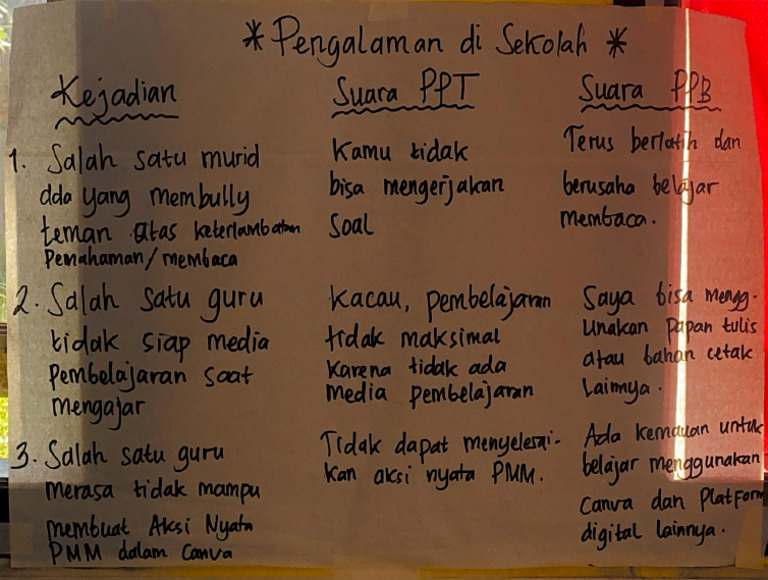 * Pengalaman di Sekolah *
Kejadian
1. Salah satu murid
ada yang membully
teman atas keterlambatan
Pemahaman/membaca
2. Salah satu guru
tidak siap media
Pembelajaran saat
mengajar
3. Salah satu guru
merasa tidak mampu
membuat Aksi Nyata
PMM dalam Canva
Suara PPT
Kamu tidak
bisa mengerjakan
Soal
Kacau, pembelajaran
tidak maksimal
Karena tidak ada
media pembelajaran
Tidak dapat menyelesai-
kan aksi nyata PMM.
Suara PPB
Terus berlatih dan
berusaha belajar
membaca.
Saya bisa mengg-
unakan papan tulis
atau bahan cetak
Lainnya.
Ada kemauan untuk
belajar menggunakan
Canva dan Platform
digital lainnya.